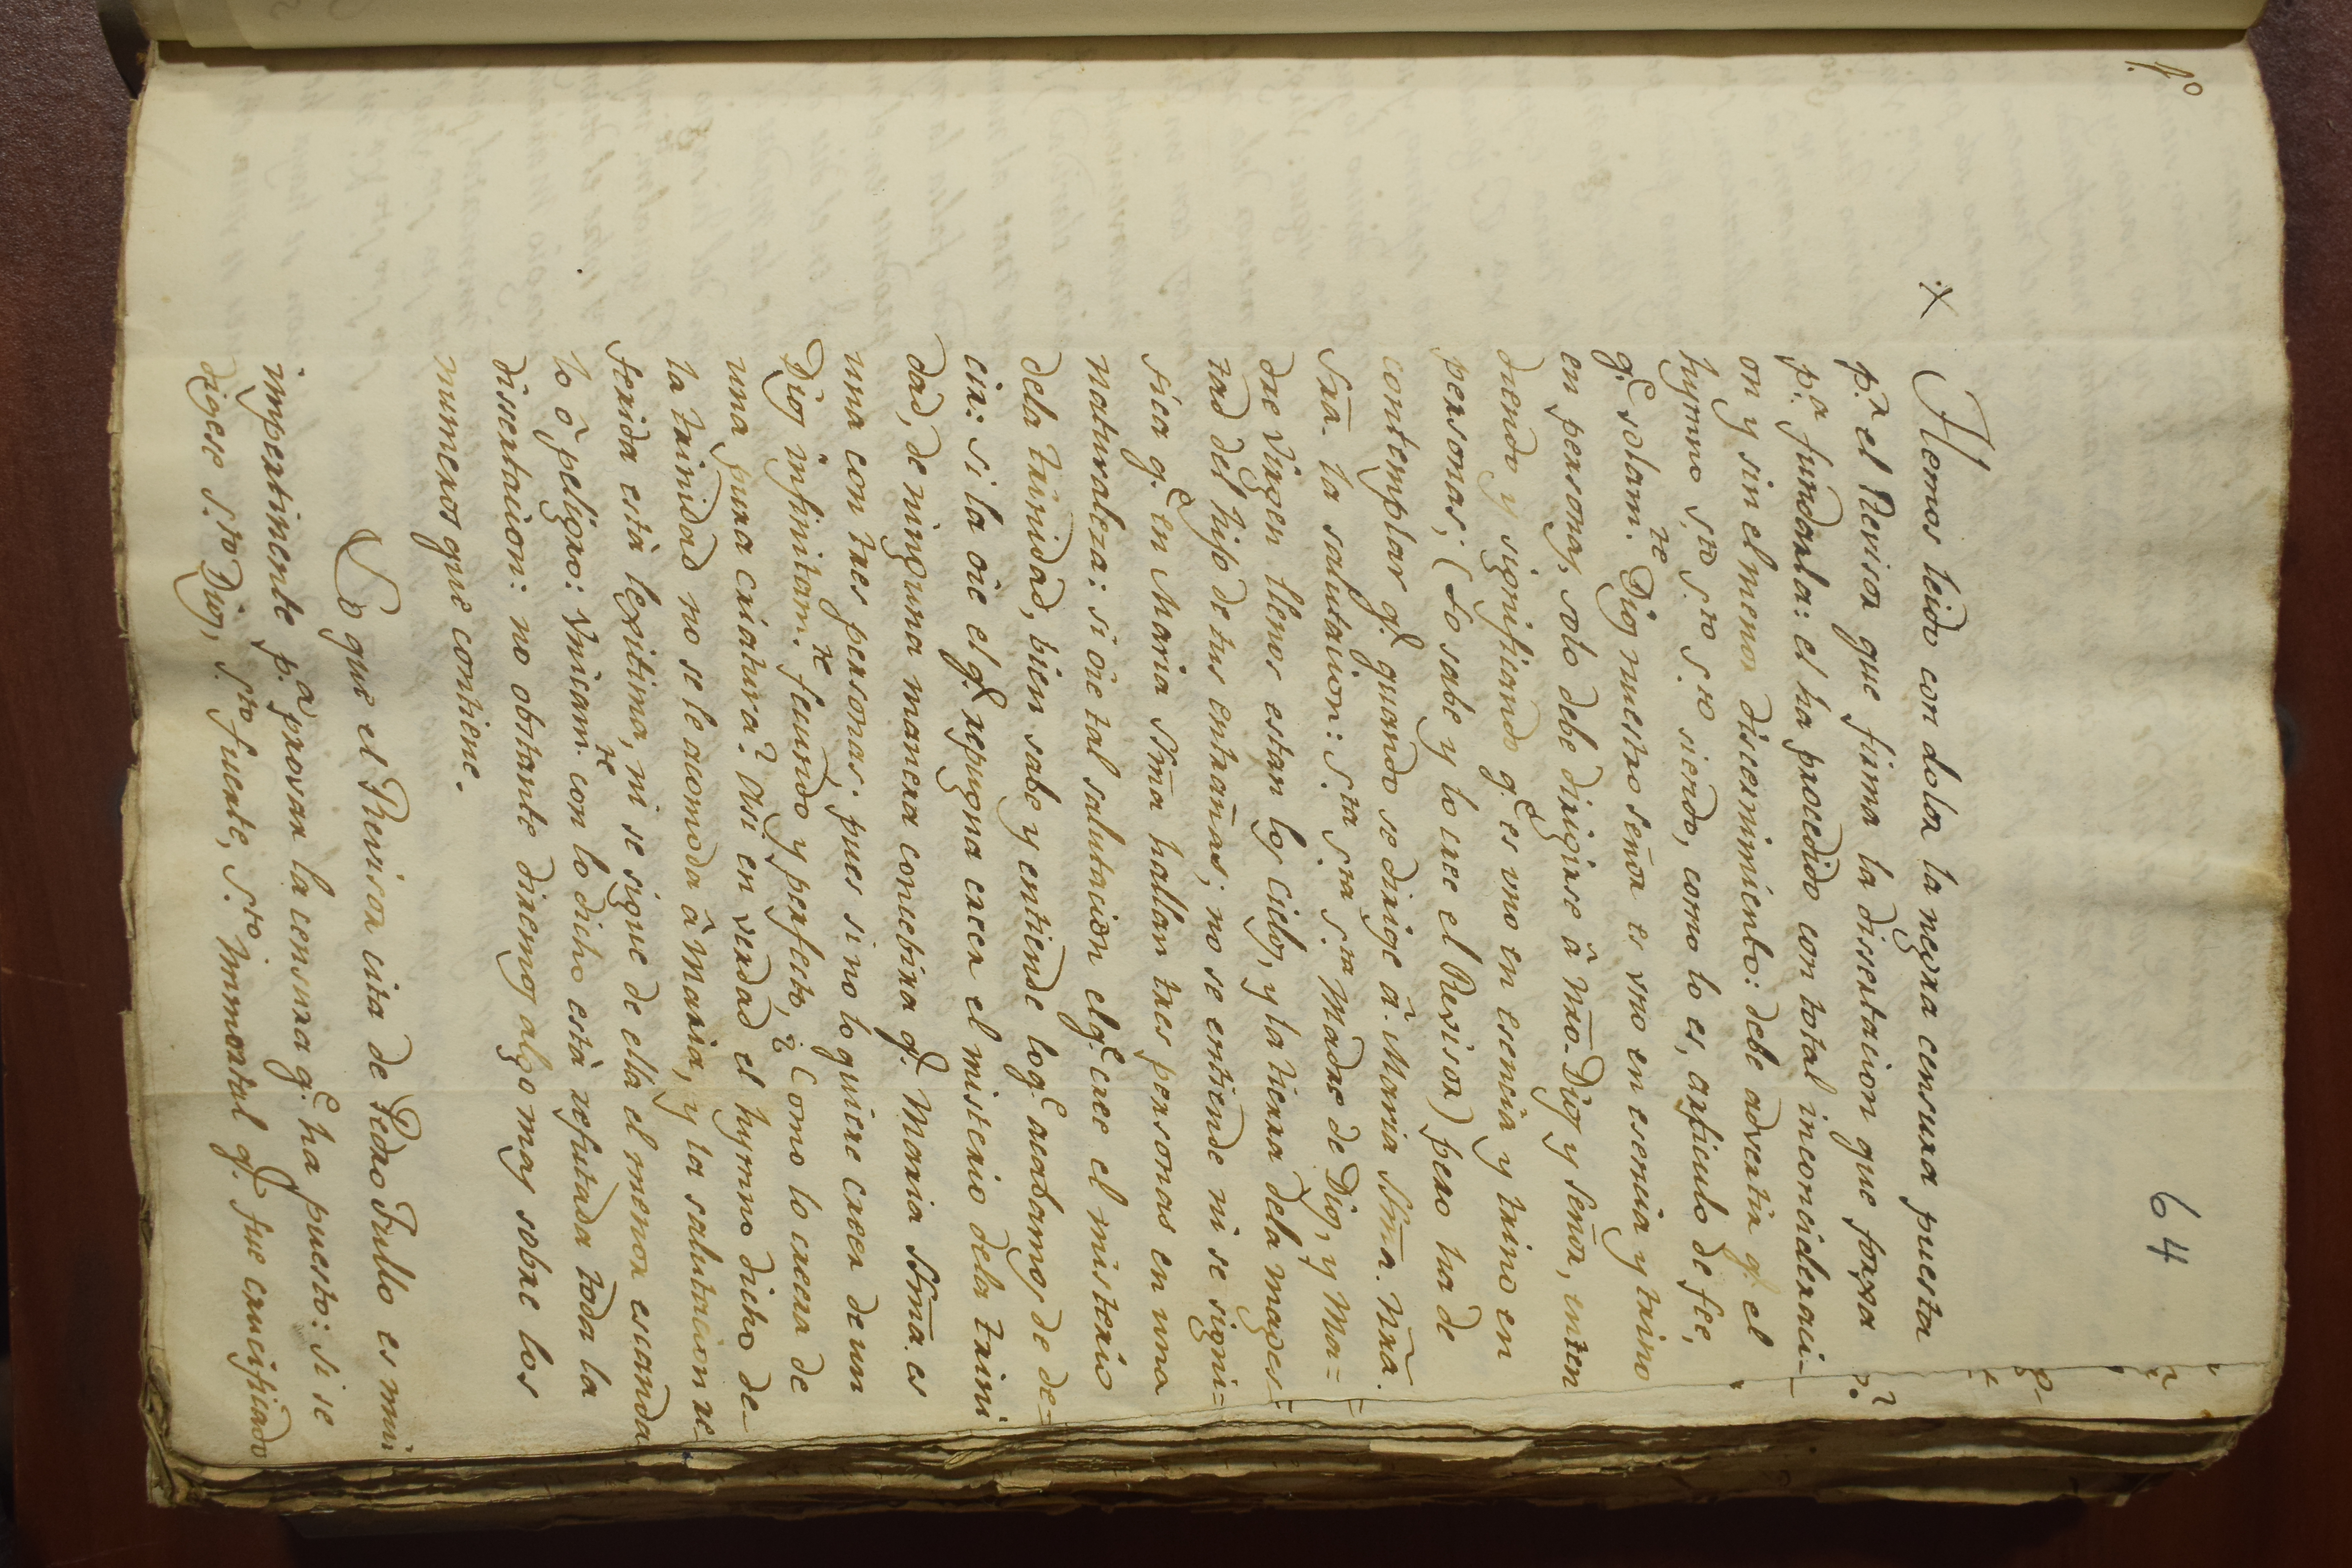 1º
64
Hemos leido con dolor la negra censura puesta
p.r el Revisor que firma la dissertacion que forxa
p.a fundarla: el ha procedido con total inconcideraci-
on y sin el menor discernimiento: debe advertir q.e el
hymno s.to s.to s.to siendo, como lo es, articulo de fee,
q.e solam.te Dios nuestro señor es vno en esencia y trino
en personas, solo debe dirigirse â nr̃o. Dios y señor, inten
diendo y significando q.e es vno en esencia y trino en
personas; (lo sabe y lo cree el Revisor) pero ha de
contemplar q.e quando se dirige â Maria Ssm̃a. Nr̃a.
Sr̃a. la salutacion: S.ta S.ta S.ta Madre de Dios, y Ma=
dre Virgen llenos estan los cielos, y la tierra dela mages-
tad del hijo de tus entrañas; no se entiende ni se signi=
fica q.e en Maria Ssm̃a hallan tres personas en una
naturaleza: si oie tal salutacion elq.e cree el misterio
dela trinidad, bien sabe y entiende loq.e acabamos de de=
cir: si la oie el q.e repugna creer el misterio dela trini
dad, de ninguna manera concebira q.e Maria Ssm̃a. es
una con tres personas. pues si no lo quiere creer de un
Dios infinitam.te fecundo y perfecto, ¿Como lo creera de
una pura criatura? Asi en verdad el hymno dicho de-
la trinidad no se le acomoda â Maria, y la salutacion re
ferida està lexitima, ni se sigue de ella el menor escanda
lo ô peligro: Vnicam.te con lo dicho està refutada toda la
dissertacion: no obstante diremos algo mas sobre los
numeros que contiene.
Lo que el Revisor cita de Pedro Fullo es mui
impertinente p.a provar la censura q.e ha puesto: si se
digese S.to Dios, S.to fuerte, S.to Immortal q.e fue crucificado